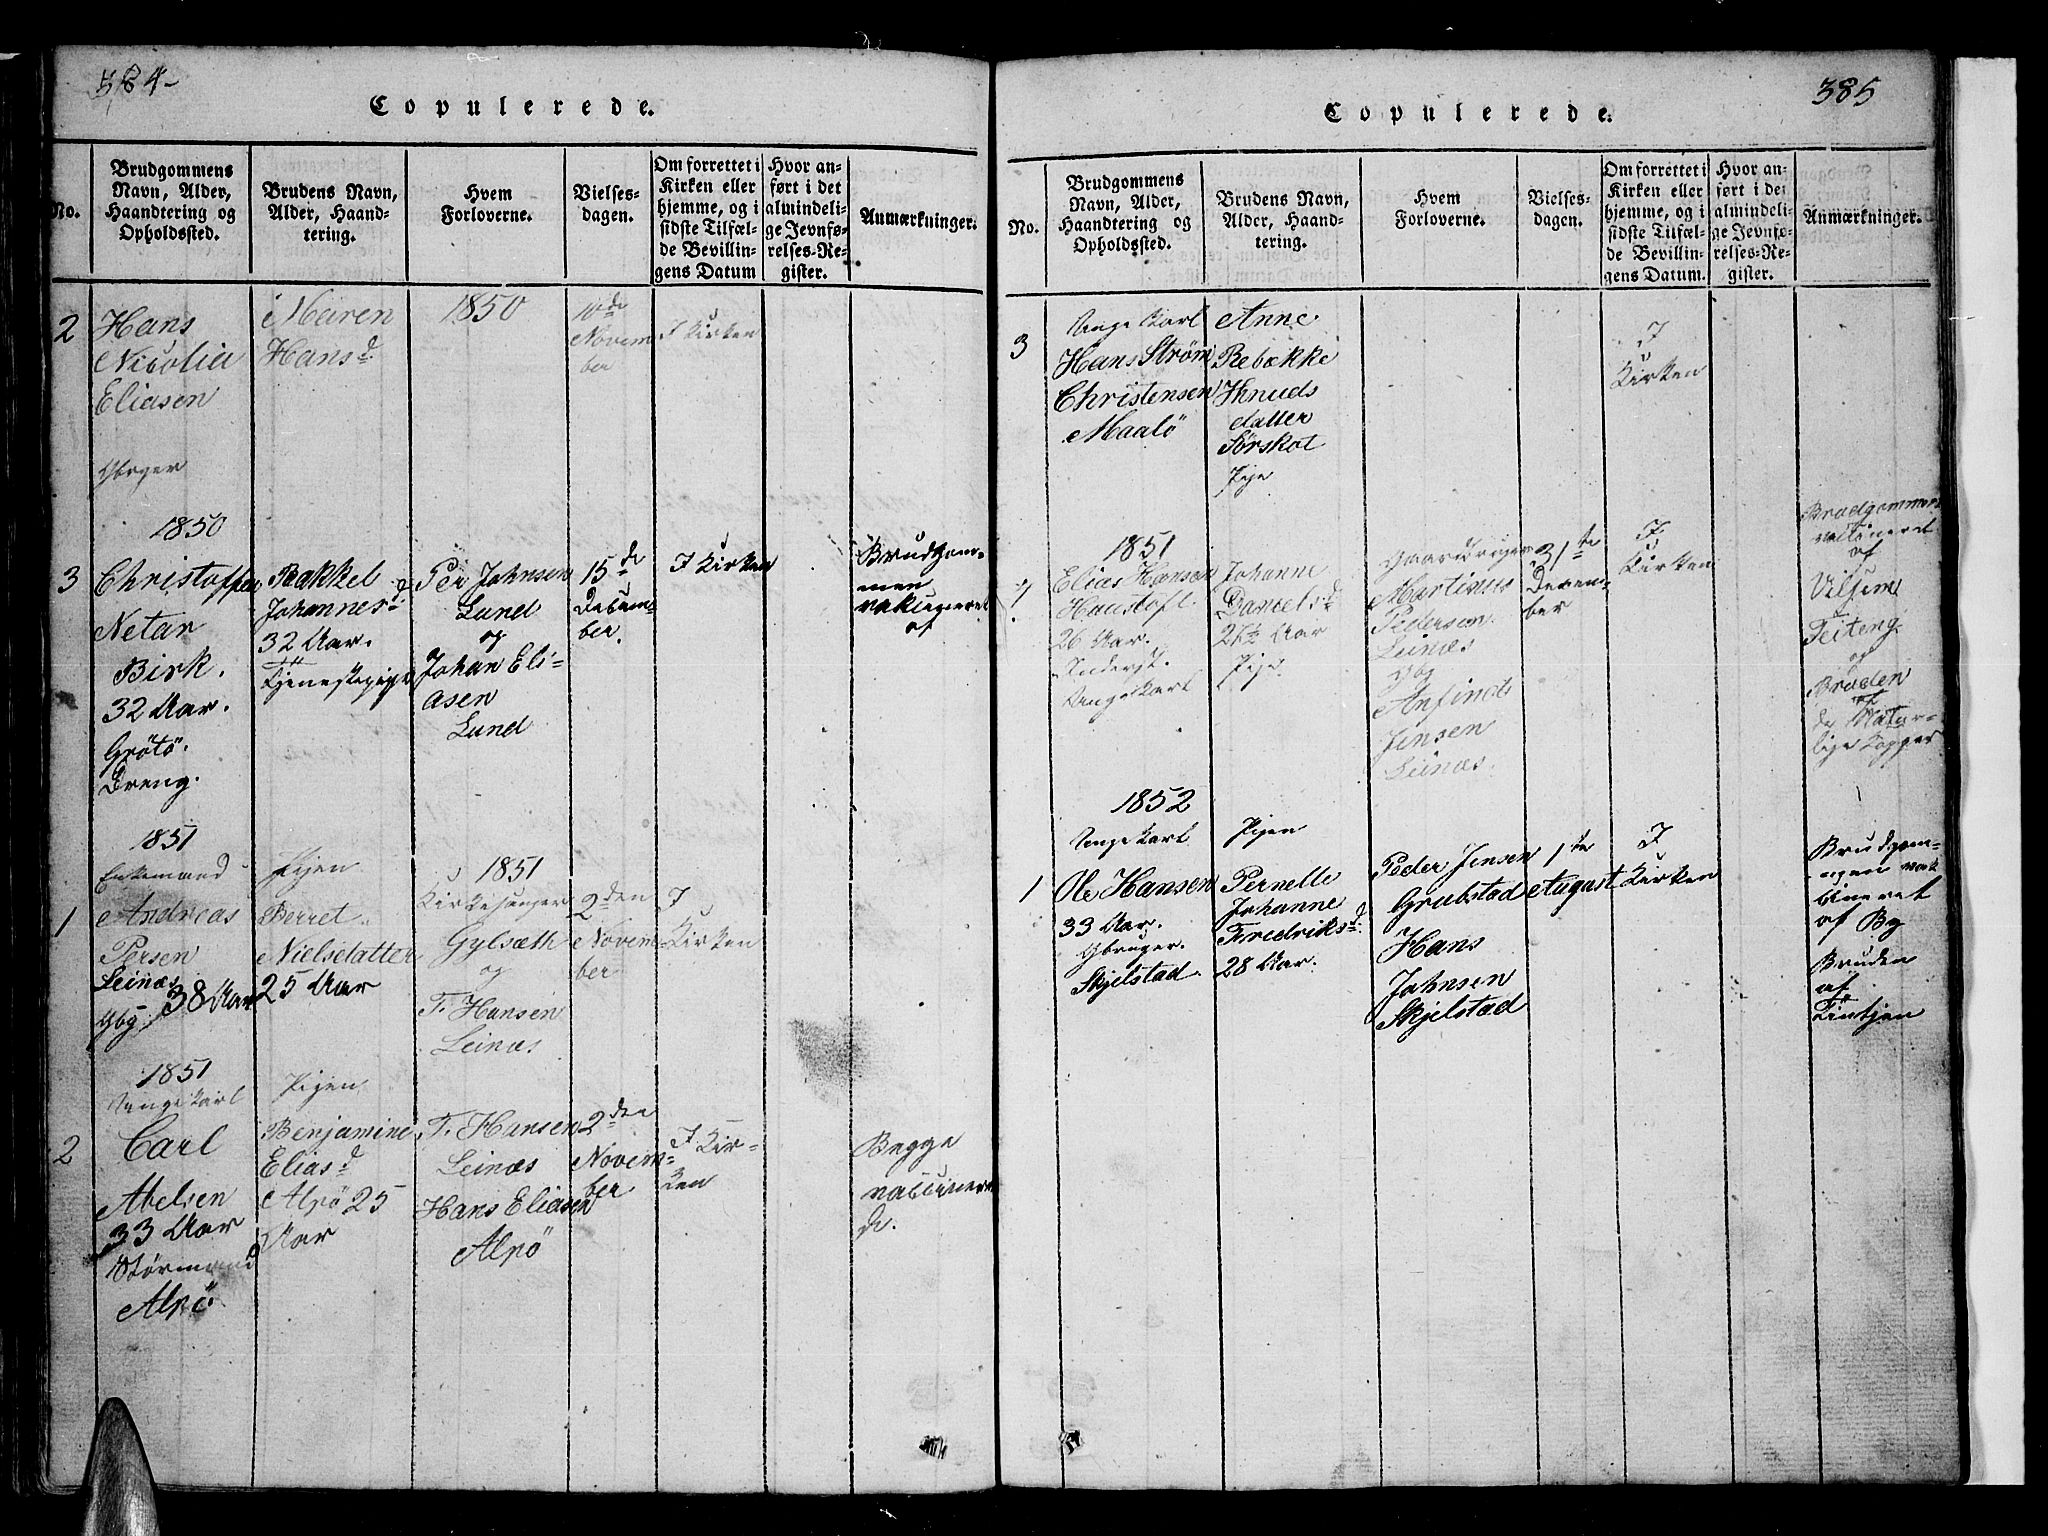 384
Copulerede.
No.
Brudgommens
Navn, Alder,
Haandtering og
Opholdssted.
Brudens Navn,
Alder, Haand-
tering.
Hvem
Forloverne.
Vielses-
dagen.
Om forrettet i
Kirken eller
hjemme, og i
sidste Tilfæl-
de Bevillin-
gens Datum
Hvor an-
ført i det
almindeli-
ge Jevnfø-
relses-Re-
gister.
Anmærkninger.
2
Hans
Nicolia
Eliasen
Gbrger
Maren
Hansd.
1850
10de
Novem
ber
I Kirken
1850
3
Christoffer
Netar
Birk.
32 Aar.
Grøtö.
Dreng.
Rakkel
Johannesd
32 Aar.
Tjenestepige
Per Johnsen
Lund
og
Johan Eli-
asen
Lund
15de
Decem-
ber.
I Kirken
Brudgom-
men
vakcineret
af
1851
Enkemand
1
Andreas
Persen
Leinæs
Gbg 38 Aar
Pigen
Berret
Nielsdatter
25 Aar
1851
Kirkesanger
Gylseth
og
T. Hansen
Leinæs
2den
Novem-
ber
I
Kirken
1851
Ungekarl
2
Carl
Abelsen
33 Aar
Størmand
Alpö.
Pigen
Benjamine
Eliasd
Alpö 25
Aar
T. Hansen
Leinæs
Hans Eliasen
Alpö
2den
Novem-
ber
I Kir-
ken
Begge
vaccinere
de.
385
Copulerede.
No.
Brudgommens
Navn, Alder,
Haandtering og
Opholdssted.
Brudens Navn,
Alder, Haand-
tering.
Hvem
Forloverne.
Vielses-
dagen.
Om forrettet i
Kirken eller
hjemme, og i
sidste Tilfæl-
de Bevillin-
gens Datum.
Hvor an-
ført i det
almindeli-
ge Jevnfø-
relses-Re-
gister.
Anmærkninger.
3
Ungekarl
Hans Strøm
Christensen
Maalö
Anne
Rebække
Knuds
datter
Sørskot
Pige
I
Kirken
1851
Elias Hansen
26 Aar.
Ungekarl
Johanne
Danielsd
Aar
Pige
Gaardbruger
Martinus
Pedersen
Leinæs
og
Anfind
Jensen
Leinæs.
31te
Decem-
ber
I
Kirken
Brudgommen
vaccineret
af
Feiteng
og
Bruden
af
de Natur-
lige Kopper
1852
1
Ungekarl
Ole Hansen
33 Aar.
Gbruger.
Skjelstad.
Pigen
Pernelle
Johanne
Fredriksd.
28 Aar.
Peder Jensen
Grubstad
Hans
Johnsen
Skjelstad
1te
August
I
Kirken
Brudgom-
men vak
cineret
af By
Bruden
af